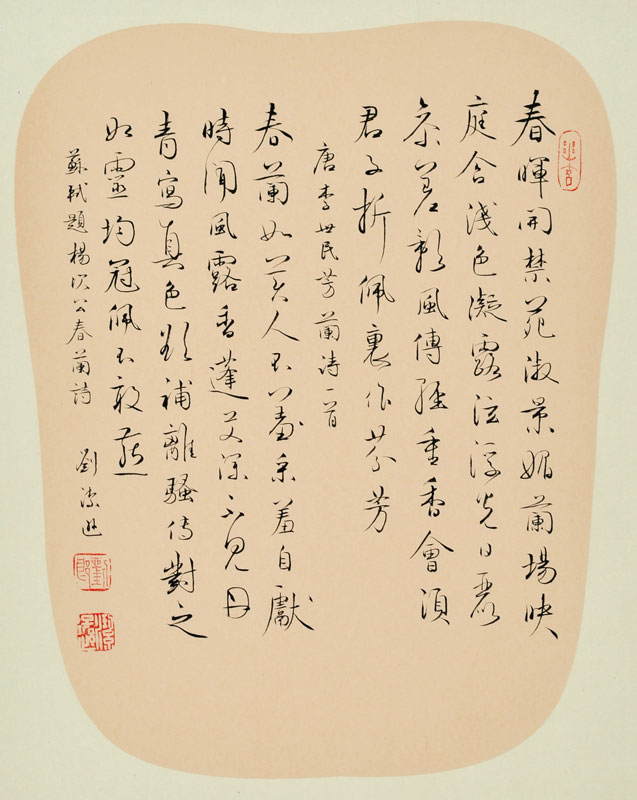 春暉開禁苑淑景媚蘭場映
庭含淺色凝露泫浮光日麗
參差影風傳輕重香會須
君子折佩裏作芬芳
唐李世民芳蘭詩一首
春蘭如美人不采羞自獻
時聞風露香蓬艾深不見丹
青寫真色欲補離騷傳對之
如靈均冠佩不敢燕
蘇軾題楊次公春蘭詩
劉